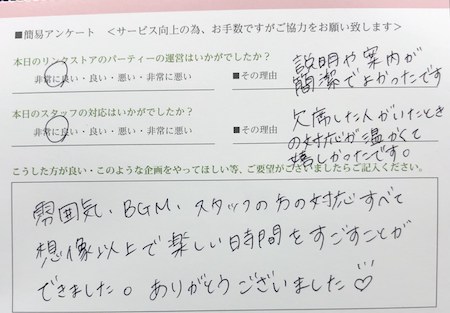 ■簡易アンケート ＜サービス向上の為、お手数ですがご協力をお願い致します＞
本日のリンクストアのパーティーの運営はいかがでしたか？
非常に良い・良い・悪い・非常に悪い ■その理由
説明や案内が
簡潔でよかったです
本日のスタッフの対応はいかがでしたか？
非常に良い・良い・悪い・非常に悪い ■その理由
欠席した人がいたとき
の対応が温かくて
嬉しかったです。
こうした方が良い・このような企画をやってほしい等、ご要望がございましたらご記入ください。
雰囲気、BGM、スタッフの方の対応すべて
想像以上で楽しい日時間をすごすことが
できました。ありがとうございました♡